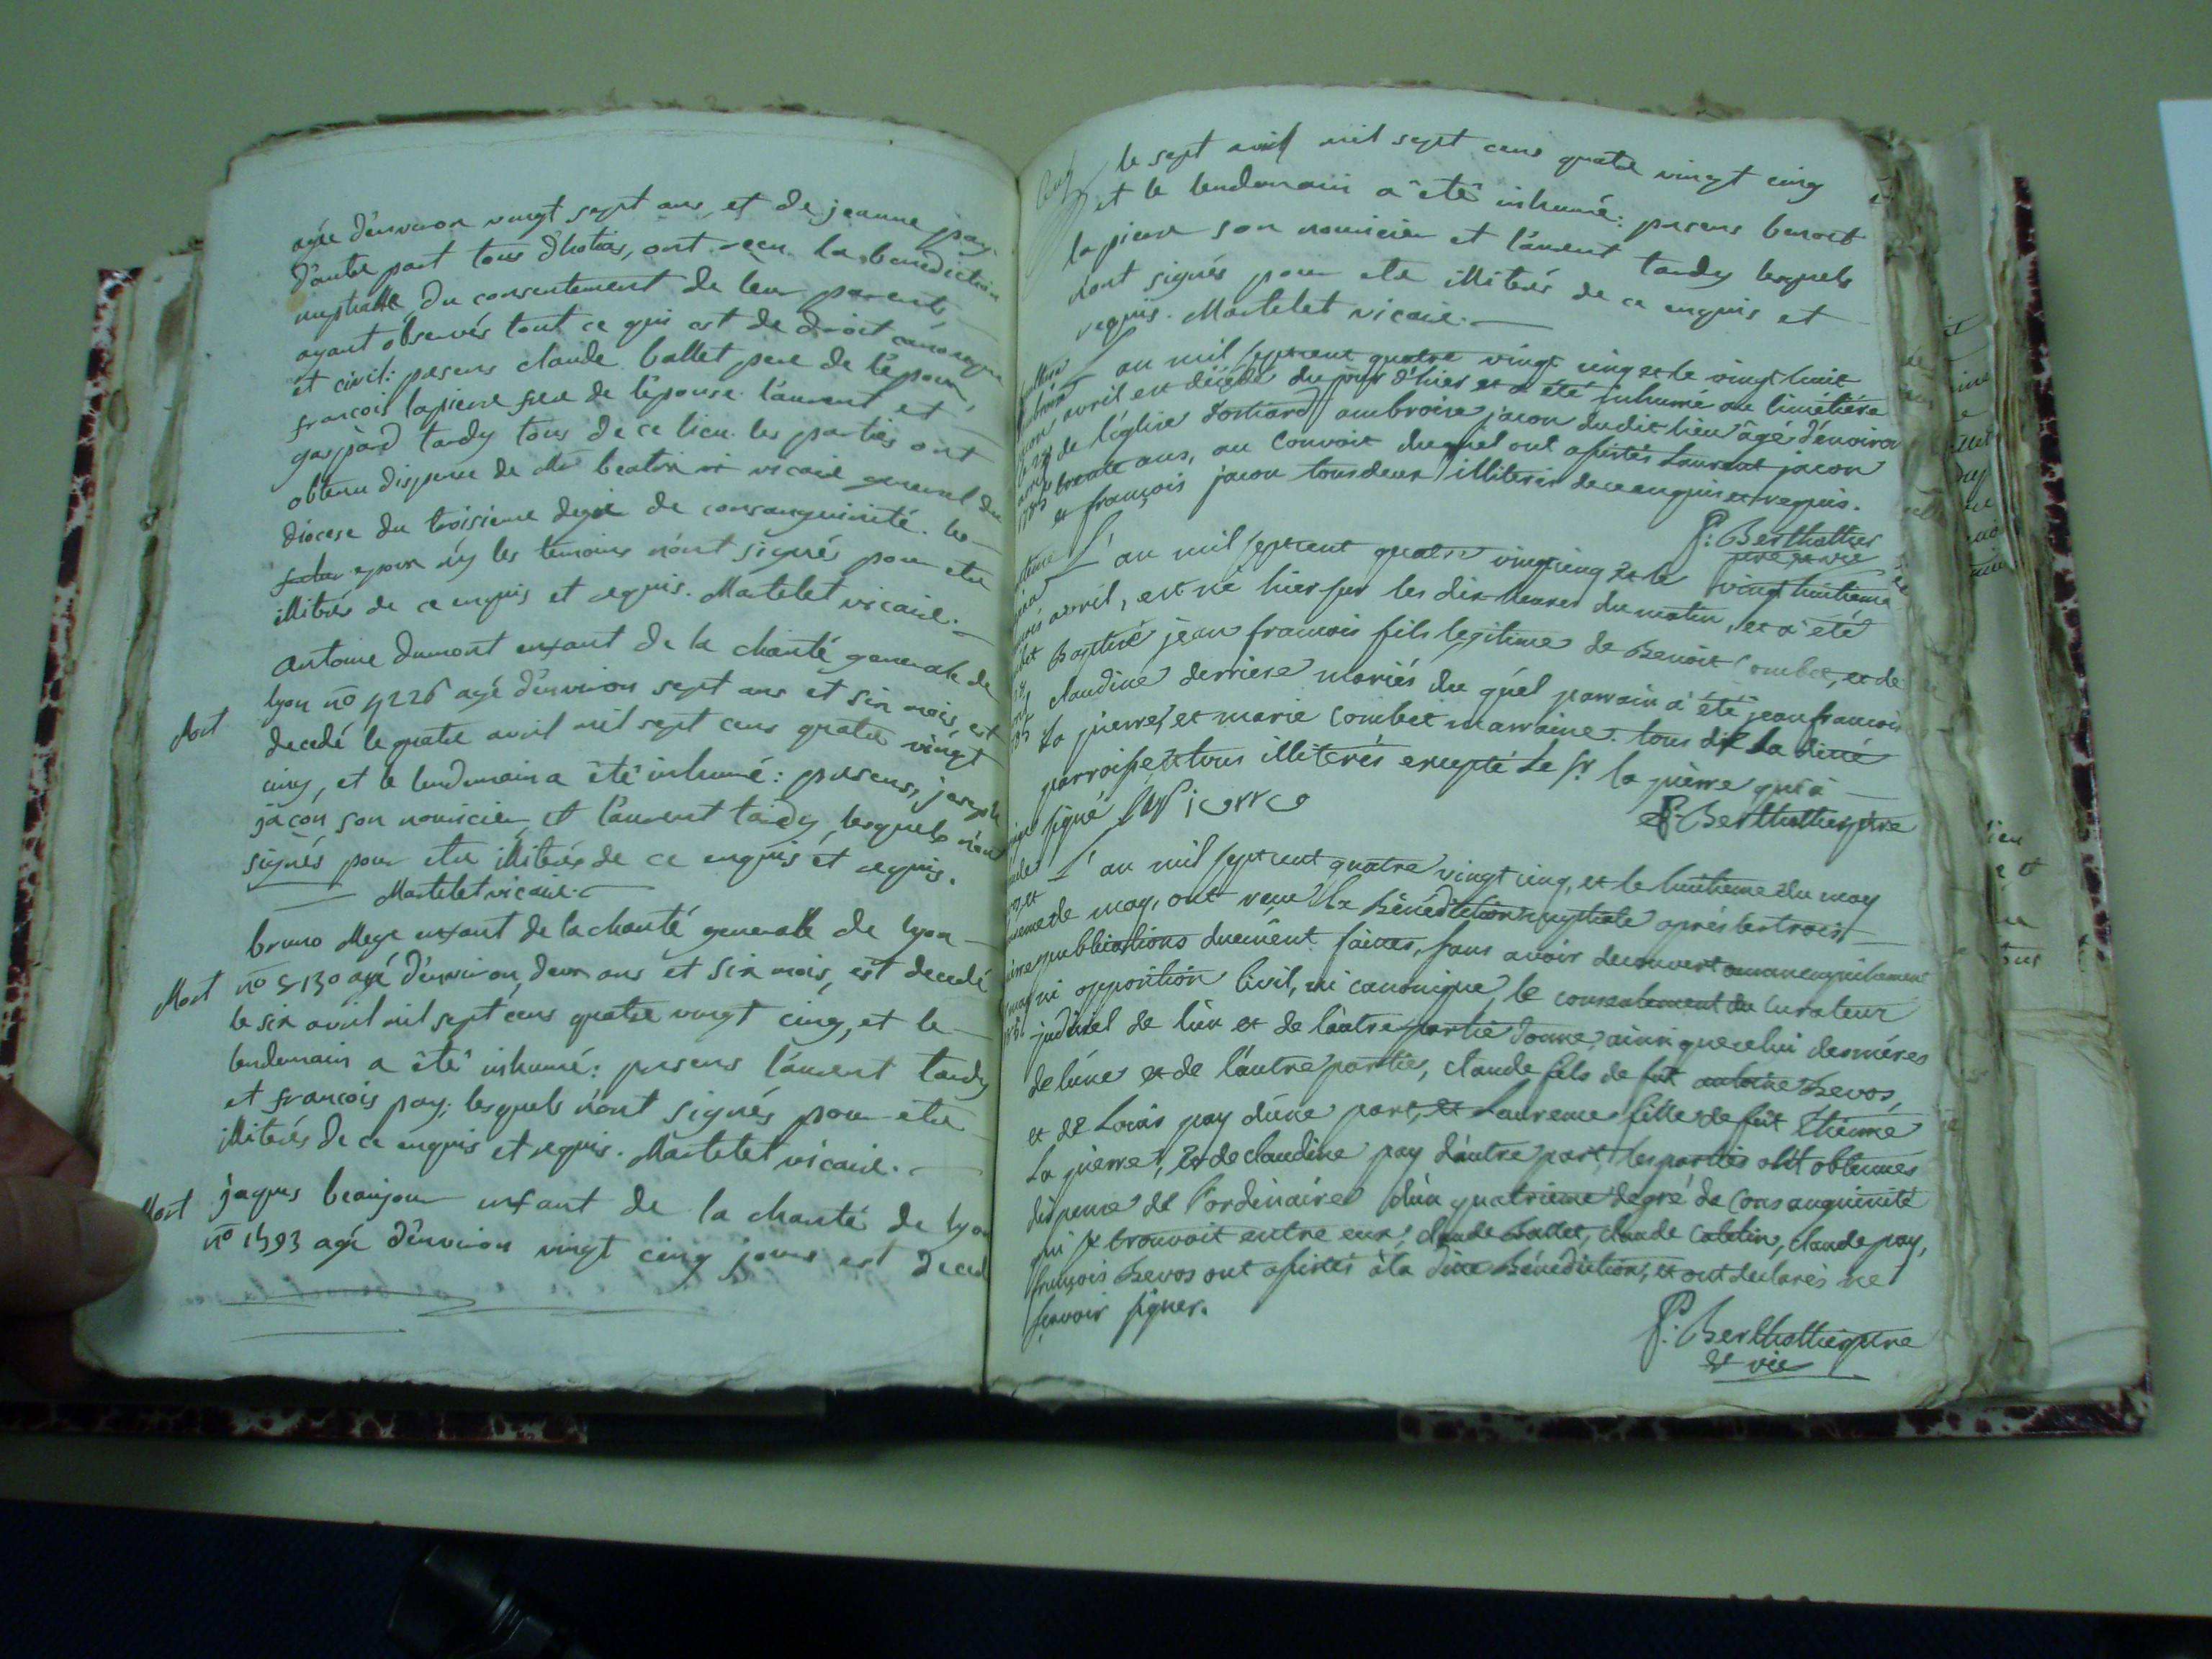 agée d'environ vingt sept ans, et de jeanne pay
d'autre part tous d'hotias, ont reçu la benediction
nuptialle, du consentement de leur parents
ayant observés tout ce qui est de droit canonique
et civil: presens claude ballet pere de l'epoux,
françois lapierre frere de l'epouse laurent et
gaspard tardy tous de ce lieu. les parties ont
obtenu dispense de Mr vicaire general du
diocese du troisieme degré de consanguinité. les
epoux n'y les temoins n'ont signés pour etre
illiterés de ce enquis et requis. Martelet vicaire.
antoine dumont enfant de la charité generale de
lyon no 4226 agé d'environ sept ans et six mois, est
Mort
decedé le quatre avril mil sept cens quatre vingt
cinq, et le lendemain a été inhumé: presens, joseph
jacon son nouricier et laurent tardy, lesquels n'ont
signés pour etre illiterés de ce enquis et requis.
Martelet vicaire.
bruno Mege enfant de la charité generalle de lyon
Mort
no 5130 agé d'environ deux ans et six mois, est decedé
le six avril mil sept cens quatre vingt cinq, et le
lendemain a été inhumé: presens laurent tardy
et françois pay; lesquels n'ont signés pour etre
illiterés de ce enquis et requis. Martelet vicaire.
Mort
jaques beaujour enfant de la charité de lyon
no 1593 agé d'environ vingt cinq jours est deced
le sept avril mil sept cens quatre vingt cinq
et le lendemain a été inhumé: presens benoit
lapierre son nouricier et laurent tardy lesquels
n'ont signés pour etre illiterés de ce enquis et
requis. Martelet vicaire.
L'an mil septcent quatre vingt cinq et le vingt huit
avril est décédé du jour d'hier et a été inhumé au cimétiére
de l'église ambroise jacon dudit lieu âgé d'environ
trente ans, au convoit duquel ont assistés Laurent jacon
et françois jacon tous deux illiterés de ce enquis et requis.
P: Berthollier
L'an mil septcent quatre vingt cinq et le vingt huitieme
avril, est né hier sur les dix heures du matin, et a été
Baptisé jean francois fils legitime de Benoit Combet, et de
claudine derriere mariés du quel parrain a été jean francois
La pierre, et marie Combet marraine. tous de La ditte
parroisse et tous illiterés excepté Le Sr la pierre qui a
signé LaPierre
P: Berthollier
L'an mil septcent quatre vingt cinq, et le huitieme du may
de may, ont reçu la Bénédiction nuptiale aprés les trois
publications duement faites, sans avoir decouvert aucun empéchement
ni opposition civil, ni canonique, le consentement du curateur
judiciel de l'un et de l'autre partie donné, ainsi que celui des méres
de l'une et de l'autre partie, claude fils de fut antoine Bevos,
et de Louis pay d'une part, et Laurence fille de fut Etienne
La pierre, et de claudine pay d'autre part, les parties ont obtenues
dispense de l'ordinaire d'un quatrieme degré de consanguinité
qui se trouvoit entre eux; claude Ballet, claude Coletin, claude pay,
françois Bevos ont assistés à la ditte Bénédiction, et ont declarés ne
sçavoir signer.
P: Berthollier
et vic